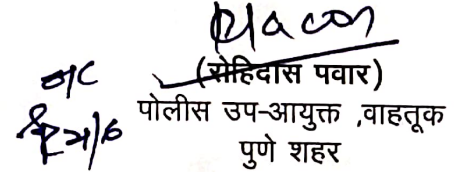 (रोहिदास पवार)
पोलीस उप-आयुक्त ,वाहतूक
पुणे शहर